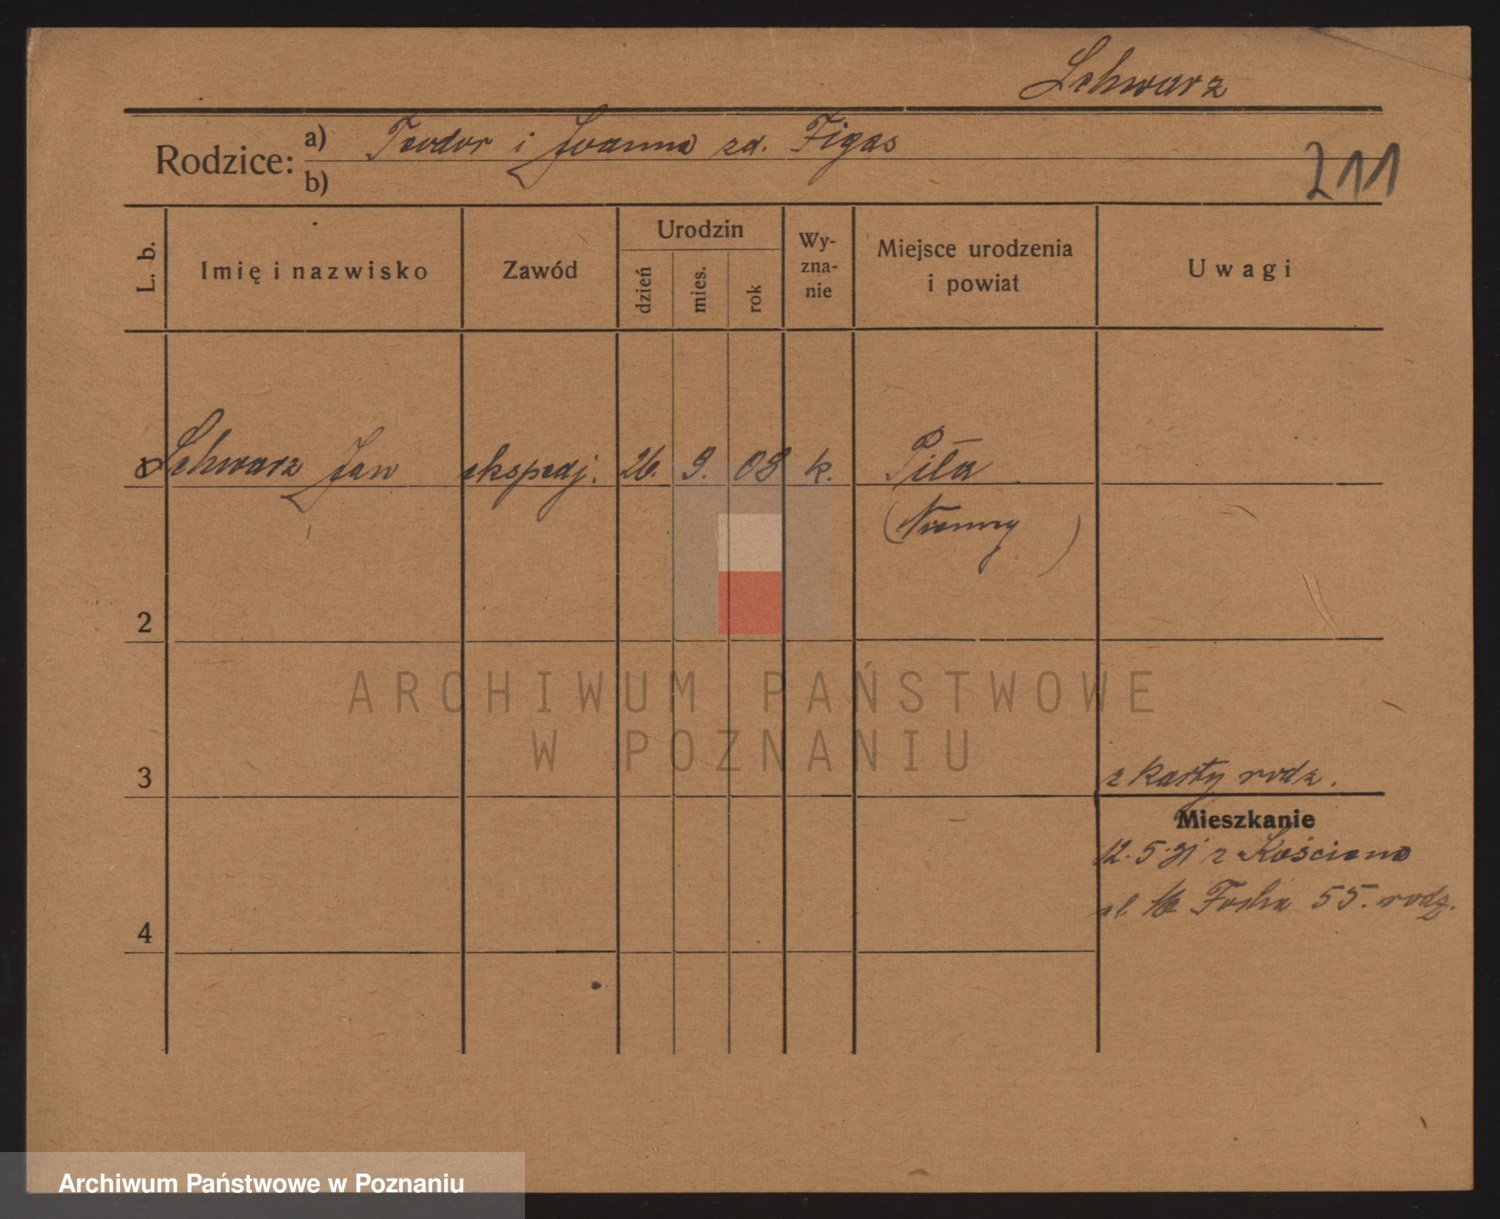 Schwarz
Rodzice: a) Teodor i Joanna zd. Figas
b)
211
L. b.
Imię i nazwisko
Zawód
Urodzin
dzień
mies.
rok
Wy-
zna-
nie
Miejsce urodzenia
i powiat
Uwagi
Schwarz Jan ekspedj. 26. 9. 09 k. Piła
(Niemcy)
2
ARCHIWUM PAŃSTWOWE
W POZNANIU
3
z karty rodz.
Mieszkanie
12.5.31 z Kościana
Focha 55. rodz.
4
Archiwum Państwowe w Poznaniu